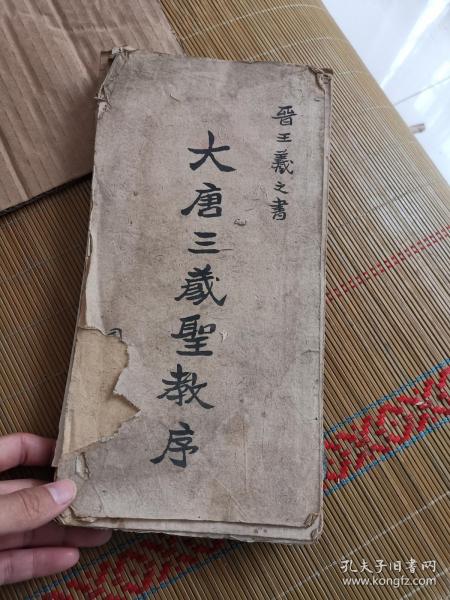 晋王羲之書
大唐三藏聖教序
孔夫子旧书网
www.kongfz.com